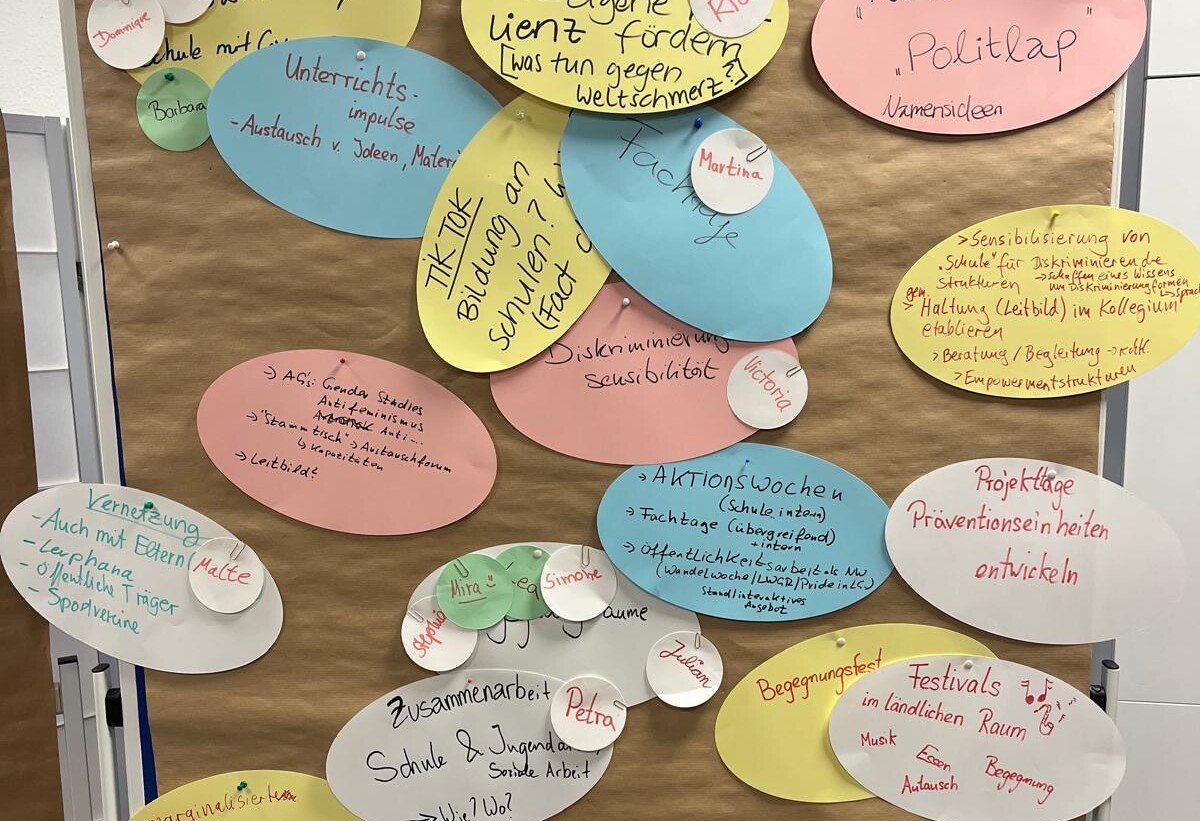 Dominique
Schule mit
Barbara
Unterrichts-
impulse
- Austausch v. Ideen, Materi
eigene
lienz fördern
[was tun gegen
Weltschmerz?]
"Politlap
Namensideen
TikTOK
Bildung an
Schulen?
(Fact
Martina
> Sensibilisierung von
"Schule" für Diskriminierende
Strukturen → schaffen eines Wissens
um Diskriminierungsformen
gem.
> Haltung (Leitbild) im Kollegium
etablieren
> Beratung / Begleitung → rechtl.
> Empowermentstrukturen
Diskriminierung
sensibilität
Victoria
→ AG's: Gender Studies
Antifeminismus
Anti...
→ "Stammtisch" → Austauschforum
↳ Kapazitäten
→ Leitbild?
Vernetzung
- Auch mit Eltern(
- Leuphana
- Öffentliche Träger
- Sportvereine
Malte
→ AKTIONSWOCHEN
(Schule intern)
→ Fachtage (übergreifend)
+ intern
→ Öffentlichkeitsarbeit als NW
(Wandelwoche/LWGR/Pride in LG)
Stand/interaktives
Angebot
Projekttage
Präventionseinheiten
entwickeln
Mira
Simone
Stephie
äume
Julian
Zusammenarbeit
Petra
Schule & Jugenda
Soziale Arbeit
→ Wie? Wo?
Begegnungsfest
Festivals
im ländlichen Raum
Musik
Essen
Begegnung
Autausch
marginalisierte